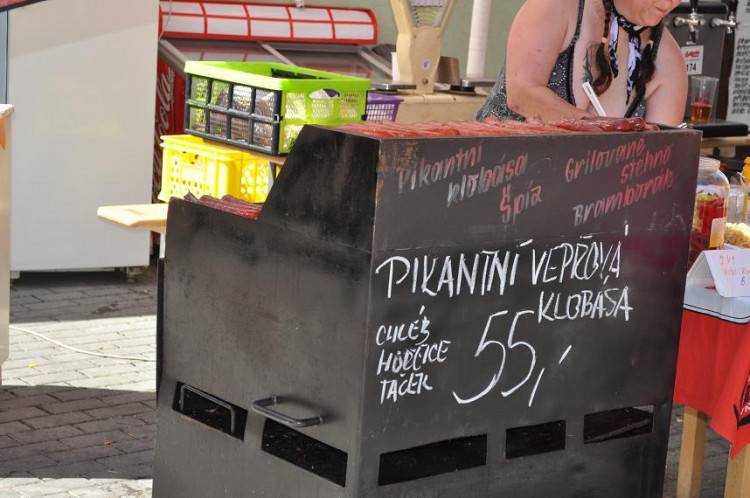 Pikantní
klobása
Špíz
Grilované
stehno
Bramborák
PIKANTNÍ VEPŘOVÁ
KLOBÁSA
CHLÉB
HOŘČICE
TÁCEK
55,-
174